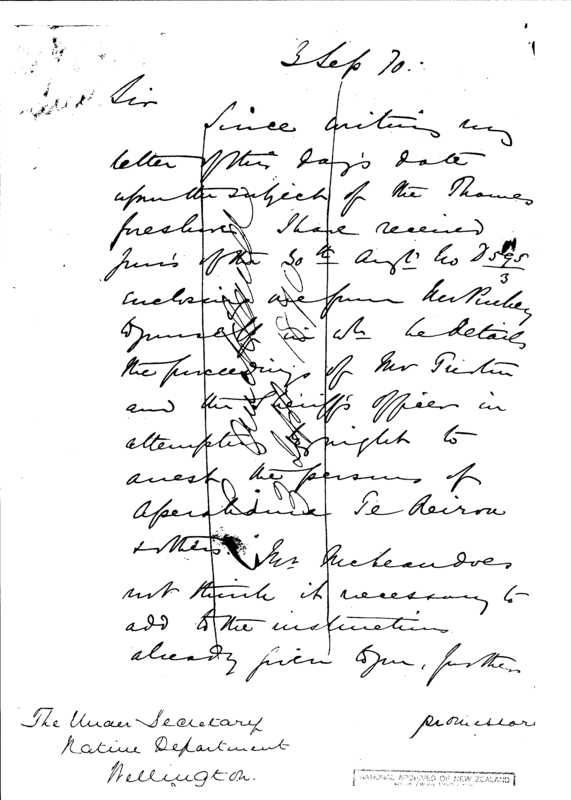 3 Sep 70.
Sir
Since writing my
letter of this day's date
upon the subject of the Thames
foreshore I have received
yours of the 30th Augt. No D 595/3
enclosing one from Mr Puckey
to yourself in wh. he details
the proceedings of Mr
and the Sheriff's officer in
attempting to night to
arrest the persons of
Aperahama Te Reirou
& others. Mr McLean does
not think it necessary to
add to the instructions
already given to you, further
The Under Secretary
Native Department
Wellington.
NATIONAL ARCHIVES OF NEW ZEALAND